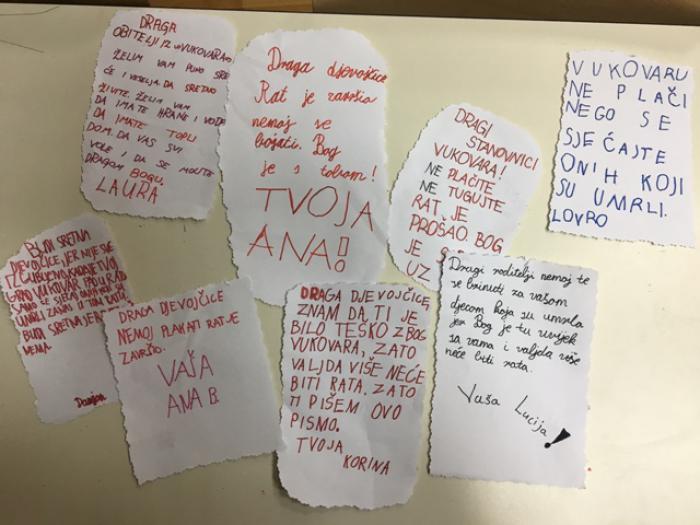 DRAGA
OBITELJI IZ VUKOVARA
ŽELIM VAM PUNO SRE
ĆE I VESELJA DA SRETNO
ŽIVITE. ŽELIM VAM
DA IMATE HRANE I VODE
DA IMATE TOPLI
DOM. DA VAS SVI
VOLE I DA SE MOLITE
DRAGOM BOGU.
LAURA
Draga djevojčice
Rat je završia
nemoj se
bojati. Bog
je s tobom!
TVOJA
ANA!
DRAGI
STANOVNICI
VUKOVARA!
NE PLAČITE
NE TUGUJTE
RAT JE
PROŠAO. BOG
JE
UZ
VUKOVARU
NE PLAČI
NEGO SE
SJEĆAJTE
ONIH KOJI
SU UMRLI.
LOVRO
BUDI SRETNA
DJEVOJČICE, JER NIJE SVE
IZGUBLJENO KADA JE TVOJ
GRAD VUKOVAR PAO U RATU
SAMO SE SJEĆAJ ONIH KOJI SU
UMRLI ZA NAS U TOM RATU
BUDI SRETNA JER RATA
NEMA.
DRAGA DJEVOJČICE
NEMOJ PLAKATI RAT JE
ZAVRŠIO.
VAŠA
ANA B.
DRAGA DJEVOJČICE,
ZNAM DA TI JE
BILO TEŠKO ZBOG
VUKOVARA, ZATO
VALJDA VIŠE NEĆE
BITI RATA. ZATO
TI PIŠEM OVO
PISMO.
TVOJA
KORINA
Dragi roditelji nemoj te
se brinuti za vašom
djecom koja su umrla
jer Bog je tu uvijek
sa vama i valjda više
neće biti rata.
Vaša Lucija!